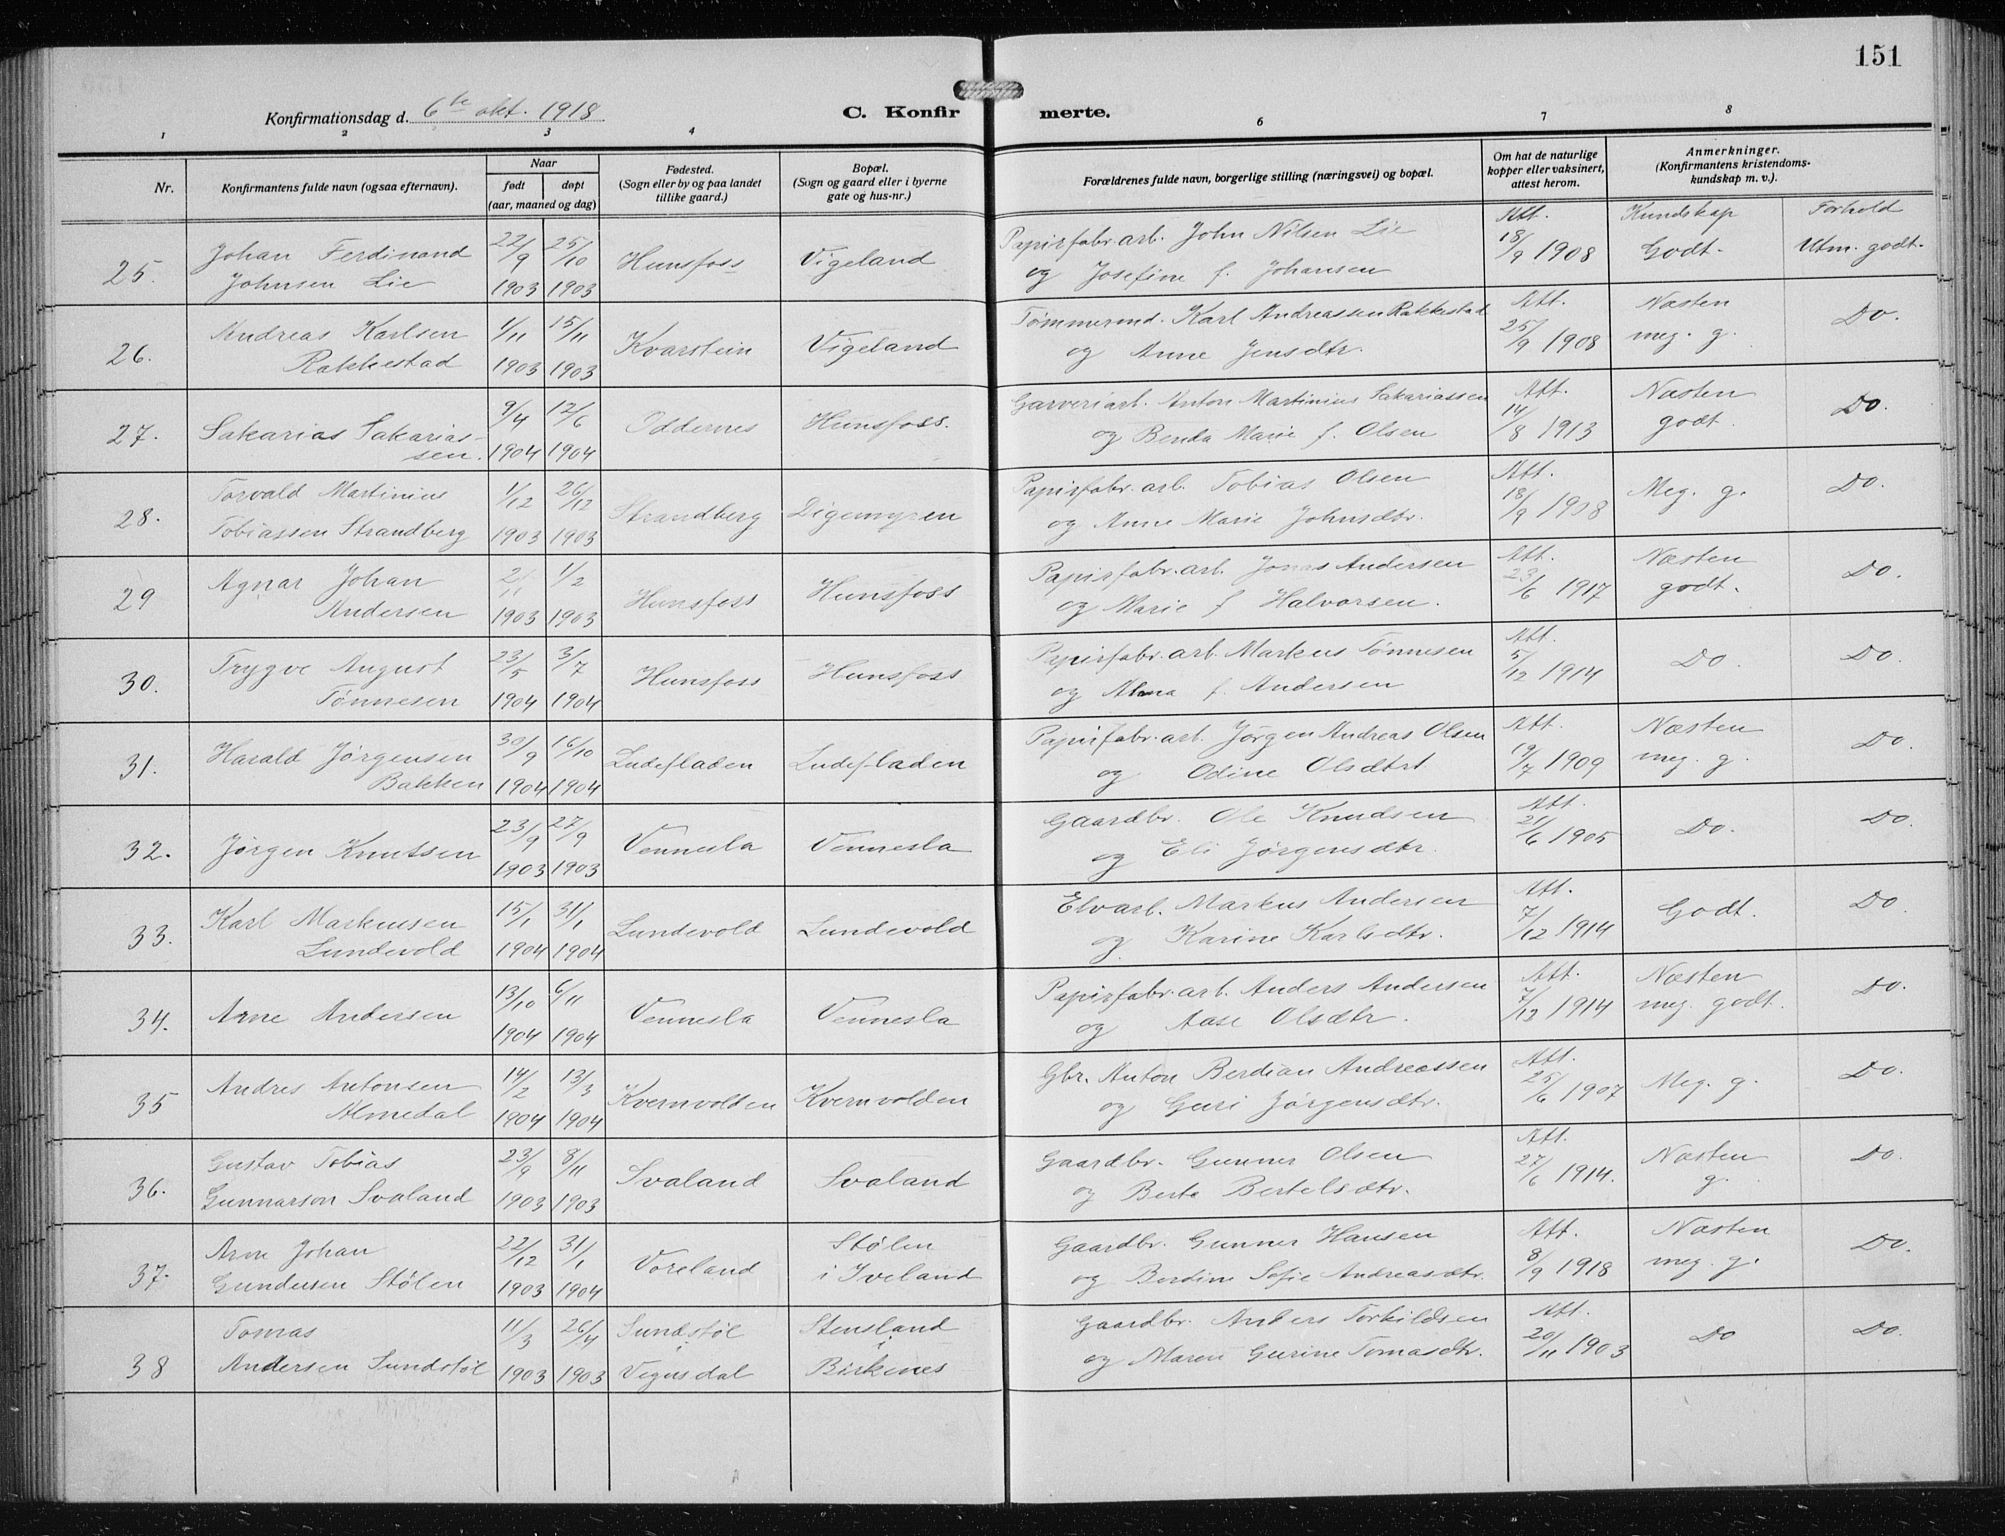 151
Konfirmationsdag d. 6te okt. 1918
C. Konfirmerte.
1 2 3 4 5 6 7 8
Nr.
Konfirmantens fulde navn (ogsaa efternavn).
Naar
født døpt
(aar, maaned og dag)
Fødested.
(Sogn eller by og paa landet
tillike gaard.)
Bopæl.
(Sogn og gaard eller i byerne
gate og hus-nr.)
Forældrenes fulde navn, borgerlige stilling (næringsvei) og bopæl.
Om hat de naturlige
kopper eller vaksinert,
attest herom.
Anmerkninger.
(Konfirmantens kristendoms-
kundskap m. v.).
Kundskap Forhold
25. Johan Ferdinand Johnsen Lie 22/9 1903 25/10 1903 Hunsfoss Vigeland
Papirfabr. arb. John Nilsen Lie og Josefine f. Johansen Att. 18/9 1908 Godt. Utm. godt.
26. Andreas Karlsen Rakkestad 1/11 1903 15/11 1903 Kvarstein Vigeland
Tømmermd. Karl Andreassen Rakkestad og Anne Jensdtr. Att. 25/9 1908 Næsten meg. g. Do.
27. Sakarias Sakariassen. 9/4 1904 12/6 1904 Oddernes Hunsfoss.
Garveriarb. Anton Martinius Sakariassen og Benda Marie f. Olsen Att. 14/8 1913 Næsten godt. Do.
28. Torvald Martinius Tobiassen Strandberg 1/12 1903 26/12 1903 Strandberg Digemyren
Papirfabr. arb. Tobias Olsen og Anne Marie Johnsdtr. Att. 18/9 1908 Meg. g. Do.
29 Agnar Johan Andersen 2/11 1903 1/2 1903 Hunsfoss Hunsfoss
Papirfabr. arb. Jonas Andersen og Marie f Halvorsen. Att. 23/6 1917 Næsten godt. Do.
30. Trygve August Tønnesen 23/5 1904 3/7 1904 Hunsfoss Hunsfoss
Papirfabr. arb. Markus Tønnesen og Alma f. Andersen Att. 5/12 1914 Do. Do.
31. Harald Jørgensen Bakken 30/9 1904 16/10 1904 Ludefladen Ludefladen
Papirfabr. arb. Jørgen Andreas Olsen og Odine Olsdtrt Att. 19/7 1909 Næsten meg. g. Do.
32. Jørgen Knutsen 23/9 1903 27/9 1903 Vennesla Vennesla
Gaardbr. Ole Knudsen og Eli Jørgensdtr. Att. 21/6 1905 Do. Do.
33. Karl Markussen Lundevold 15/1 1904 31/1 1904 Lundevold Lundevold
Elvarb. Markus Andersen og Karine Karlsdtr. Att. 7/12 1914 Godt. Do.
34. Arne Andersen 13/10 1904 6/11 1904 Vennesla Vennesla
Papirfabr. arb. Anders Andersen og Aase Olsdtr. Att. 7/12 1914 Næsten meg. godt. Do.
35 Andres Antonsen Almedal 14/2 1904 13/3 1904 Kvernvolden Kvernvolden
Gbr. Anton Berdian Andreassen og Guri Jørgensdtr. Att. 25/6 1907 Meg. g. Do.
36. Gustav Tobias Gunnarson Svaland 23/9 1903 8/11 1903 Svaland Svaland
Gaardbr. Gunner Olsen og Berte Bertelsdtr. Att. 27/6 1914. Næsten g. Do.
37. Arne Johan Gundersen Stølen 22/12 1903 31/1 1904 Voreland Stølen i Iveland
Gaardbr. Gunner Hansen og Berdine Sofie Andreasdtr. Att. 8/9 1918 Næsten meg. g. Do.
38 Tomas Andersen Sundstøl 11/3 1903 26/4 1903 Sundstøl i Vegusdal Stensland i Birkenes
Gaardbr. Anders Torkildsen og Maren Gurine Tomasdtr. Att. 20/11 1903 Do Do.